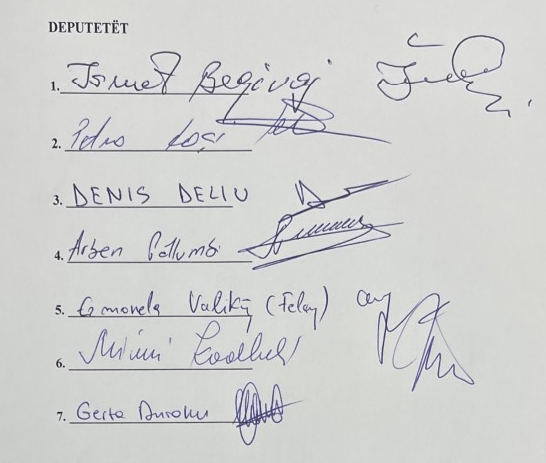 DEPUTETËT
1. Ismet Beqiraj
2. Petro Koçi
3. DENIS DELIU
4. Arben Pëllumbi
5. Emonela Valikaj (Felaj)
6. Mimi Kodheli
7. Gerta Duraku